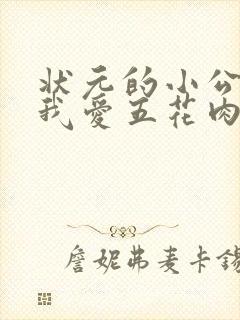 状元的小公
我爱五花肉
詹妮弗麦卡锡